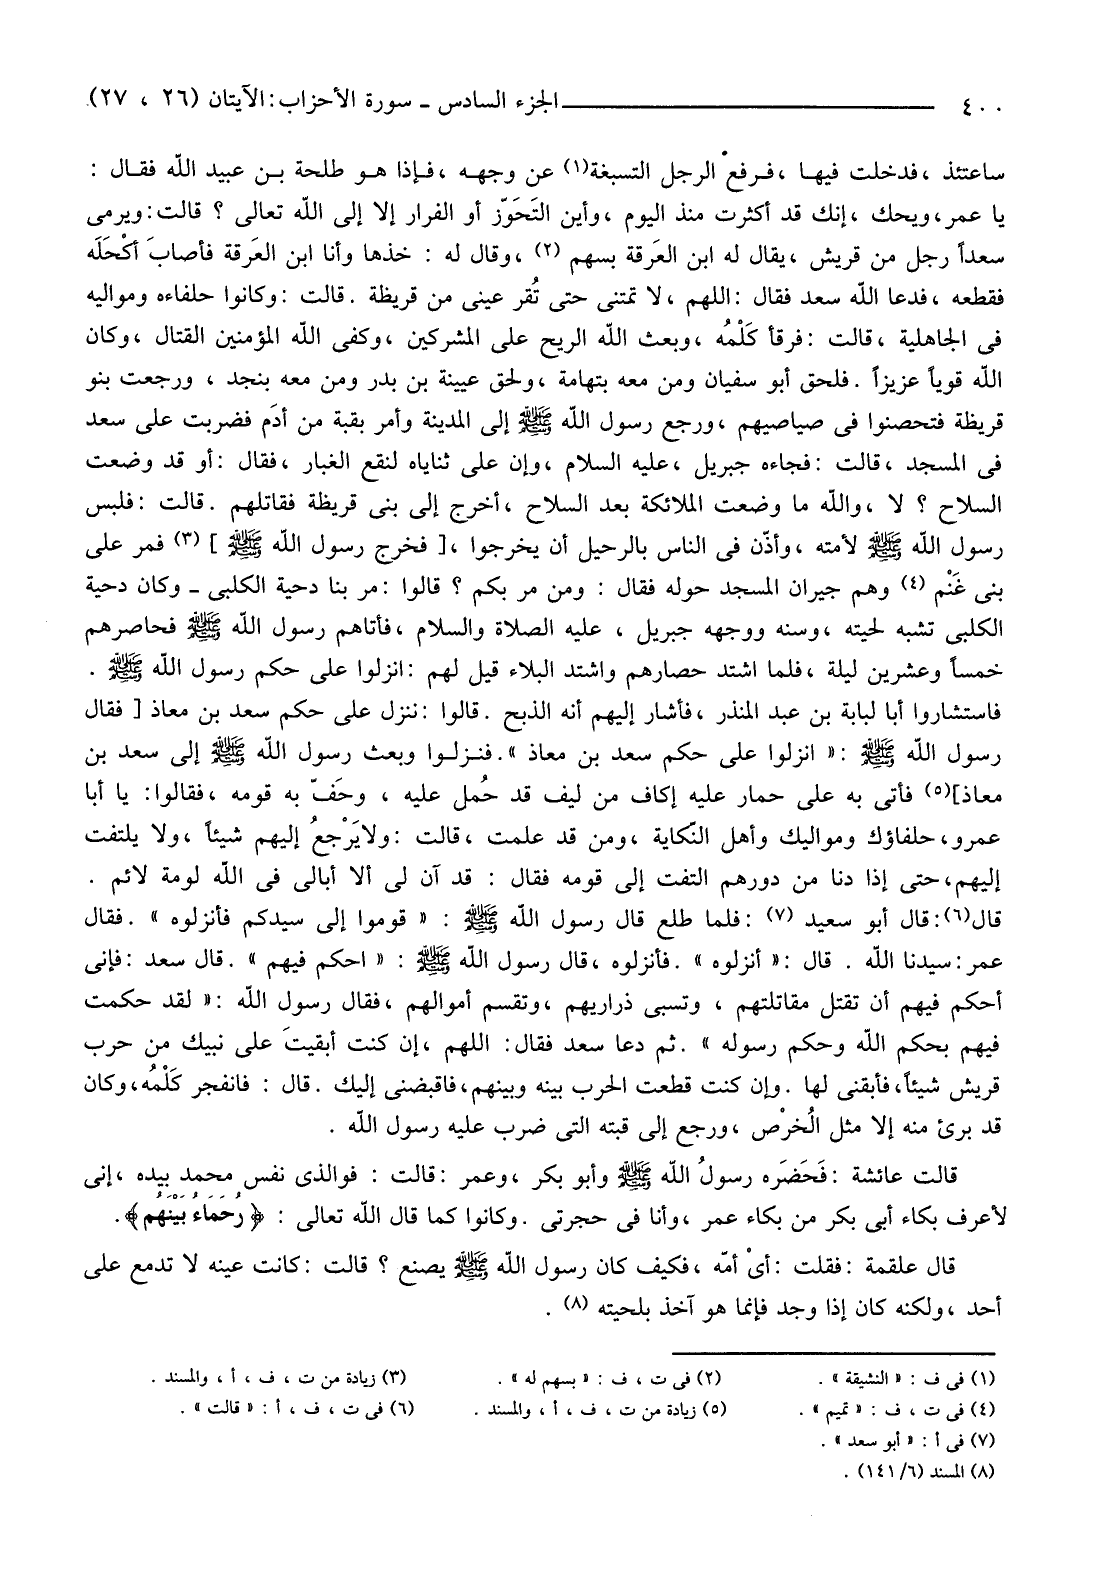 ٤٠٠ ــــــــــــــــــــ الجزء السادس ـ سورة الأحزاب : الآيتان (٢٦ ، ٢٧)
ساعتئذ ، فدخلت فيها ، فرفع الرجل التسبغة(١) عن وجهه ، فإذا هو طلحة بن عبيد الله فقال :
يا عمر، ويحك ، إنك قد أكثرت منذ اليوم ، وأين التَحَوّز أو الفرار إلا إلى الله تعالى ؟ قالت: ويرمى
سعداً رجل من قريش ، يقال له ابن العَرقة بسهم (٢) ، وقال له : خذها وأنا ابن العَرقة فأصابَ أكْحَلَه
فقطعه ، فدعا الله سعد فقال : اللهم ، لا تمتنى حتى تُقر عينى من قريظة . قالت : وكانوا حلفاءه ومواليه
فى الجاهلية ، قالت : فرقأ كَلْمُه ، وبعث الله الريح على المشركين ، وكفى الله المؤمنين القتال ، وكان
الله قوياً عزيزاً . فلحق أبو سفيان ومن معه بتهامة ، ولحق عيينة بن بدر ومن معه بنجد ، ورجعت بنو
قريظة فتحصنوا فى صياصيهم ، ورجع رسول الله ﷺ إلى المدينة وأمر بقبة من أدَم فضربت على سعد
فى المسجد ، قالت : فجاءه جبريل ، عليه السلام ، وإن على ثناياه لنقع الغبار ، فقال : أو قد وضعت
السلاح ؟ لا ، والله ما وضعت الملائكة بعد السلاح ، أخرج إلى بنى قريظة فقاتلهم . قالت : فلبس
رسول الله ﷺ لأمته ، وأذّن فى الناس بالرحيل أن يخرجوا ، [ فخرج رسول الله ﷺ ] (٣) فمر على
بنى غَنْم (٤) وهم جيران المسجد حوله فقال : ومن مر بكم ؟ قالوا : مر بنا دحية الكلبى ـ وكان دحية
الكلبى تشبه لحيته ، وسنه ووجهه جبريل ، عليه الصلاة والسلام ، فأتاهم رسول الله ﷺ فحاصرهم
خمساً وعشرين ليلة ، فلما اشتد حصارهم واشتد البلاء قيل لهم : انزلوا على حكم رسول الله ﷺ .
فاستشاروا أبا لبابة بن عبد المنذر ، فأشار إليهم أنه الذبح . قالوا : ننزل على حكم سعد بن معاذ [ فقال
رسول الله ﷺ : « انزلوا على حكم سعد بن معاذ ». فنزلوا وبعث رسول الله ﷺ إلى سعد بن
معاذ](٥) فأتى به على حمار عليه إكاف من ليف قد حُمل عليه ، وحَفّ به قومه ، فقالوا: يا أبا
عمرو، حلفاؤك ومواليك وأهل النّكاية ، ومن قد علمت ، قالت : ولايَرْجعُ إليهم شيئاً ، ولا يلتفت
إليهم، حتى إذا دنا من دورهم التفت إلى قومه فقال : قد آن لى ألا أبالى فى الله لومة لائم .
قال(٦): قال أبو سعيد (٧) : فلما طلع قال رسول الله ﷺ : « قوموا إلى سيدكم فأنزلوه » . فقال
عمر: سيدنا الله . قال : « أنزلوه » . فأنزلوه ، قال رسول الله ﷺ : « احكم فيهم » . قال سعد : فإنى
أحكم فيهم أن تقتل مقاتلتهم ، وتسبى ذراريهم ، وتقسم أموالهم ، فقال رسول الله : « لقد حكمت
فيهم بحكم الله وحكم رسوله » . ثم دعا سعد فقال: اللهم ، إن كنت أبقيتَ على نبيك من حرب
قريش شيئاً، فأبقنى لها . وإن كنت قطعت الحرب بينه وبينهم، فاقبضنى إليك . قال : فانفجر كَلْمُه، وكان
قد برئ منه إلا مثل الُخرْص ، ورجع إلى قبته التى ضرب عليه رسول الله .
قالت عائشة : فَحَضَره رسولُ الله ﷺ وأبو بكر ، وعمر : قالت : فوالذى نفس محمد بيده ، إنى
لأعرف بكاء أبى بكر من بكاء عمر ، وأنا فى حجرتى . وكانوا كما قال الله تعالى : ﴿ رُحَمَاءُ بَيْنَهُم ﴾ .
قال علقمة : فقلت : أىْ أمّه ، فكيف كان رسول الله ﷺ يصنع ؟ قالت : كانت عينه لا تدمع على
أحد ، ولكنه كان إذا وجد فإنما هو آخذ بلحيته (٨) .
(١) فى ف : « النشيقة » . (٢) فى ت ، ف : « بسهم له » . (٣) زيادة من ت ، ف ، أ ، والمسند .
(٤) فى ت ، ف : « تميم » . (٥) زيادة من ت ، ف ، أ ، والمسند . (٦) فى ت ، ف ، أ : « قالت » .
(٧) فى أ : « أبو سعد » .
(٨) المسند (١٤١/٦) .